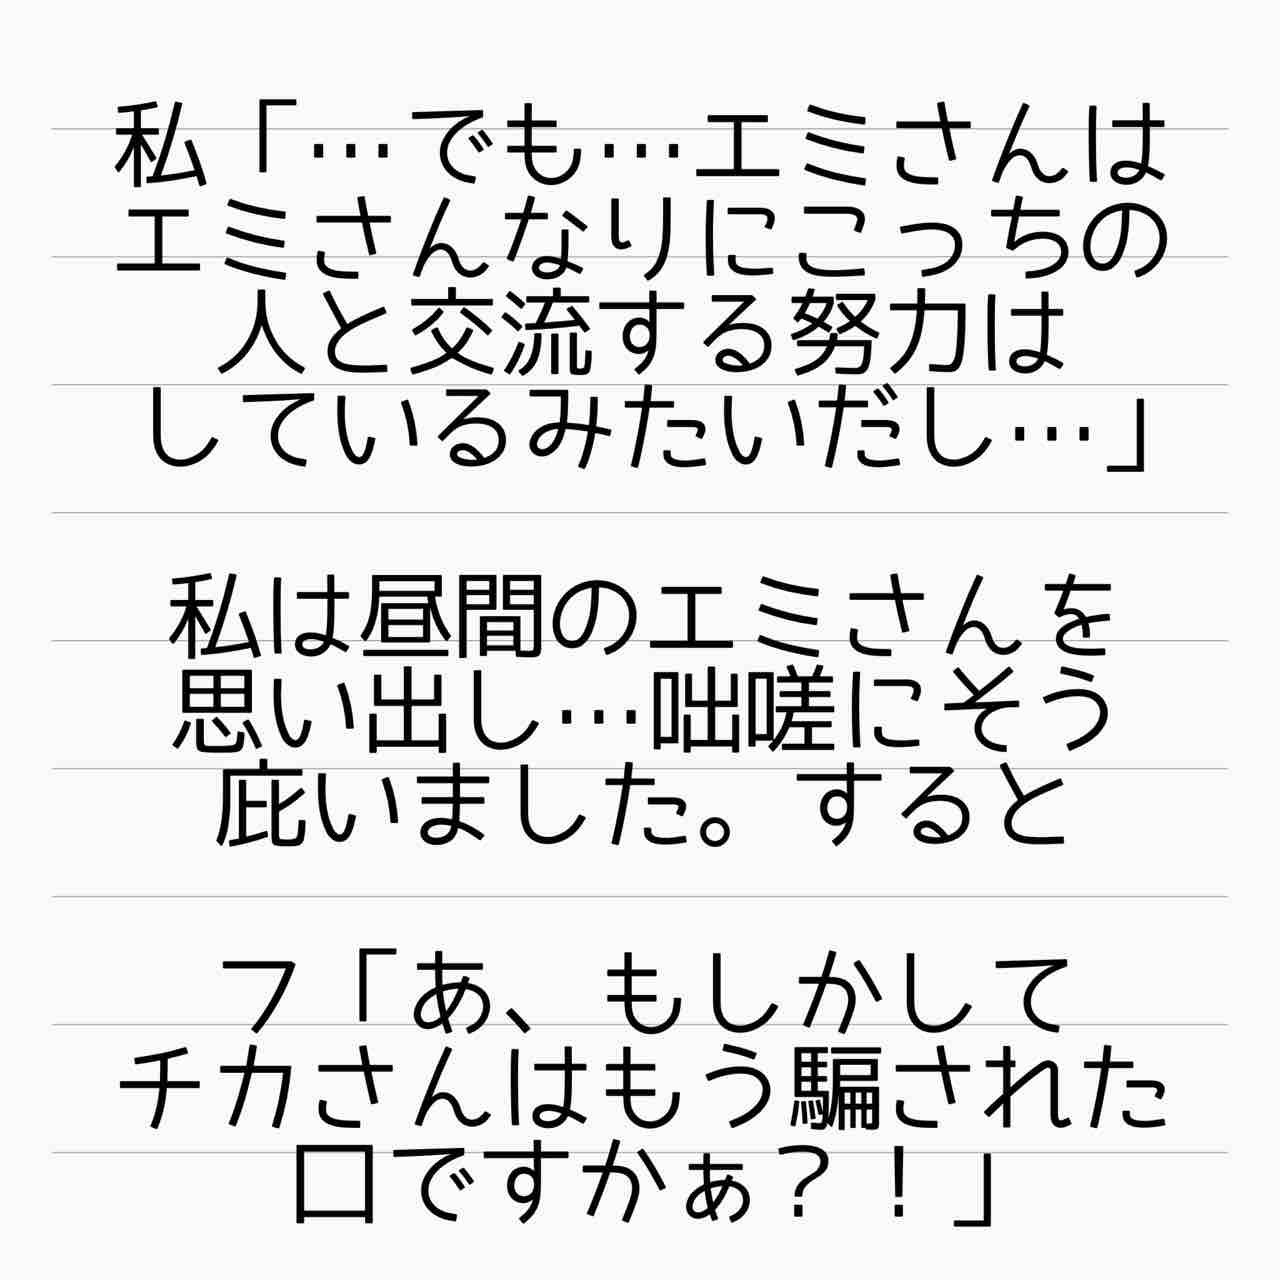 私「…でも…エミさんは
エミさんなりにこっちの
人と交流する努力は
しているみたいだし…」
私は昼間のエミさんを
思い出し…咄嗟にそう
庇いました。すると
フ「あ、もしかして
チカさんはもう騙された
口ですかぁ？！」